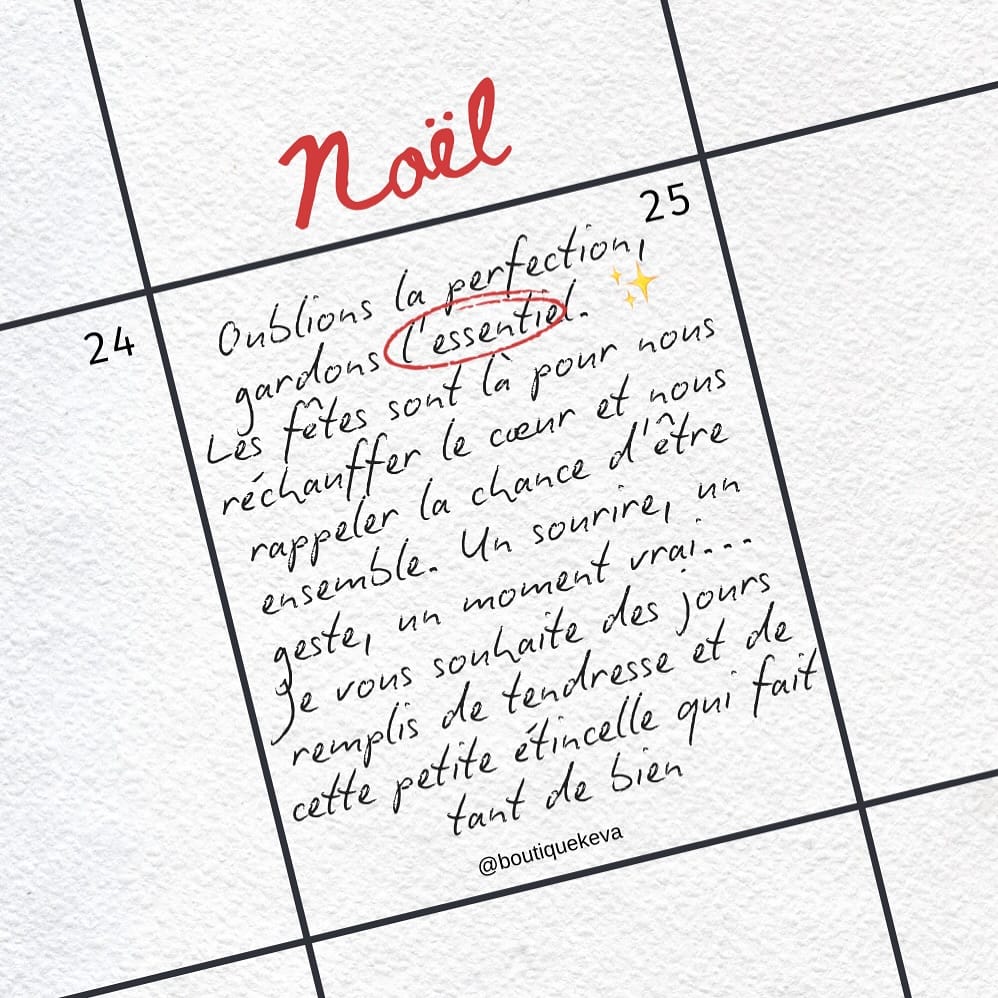 Noël
25
24
Oublions la perfection,
gardons l'essentiel. ✨
Les fêtes sont là pour nous
réchauffer le cœur et nous
rappeler la chance d'être
ensemble. Un sourire, un
geste, un moment vrai...
Je vous souhaite des jours
remplis de tendresse et de
cette petite étincelle qui fait
tant de bien
@boutiquekeva